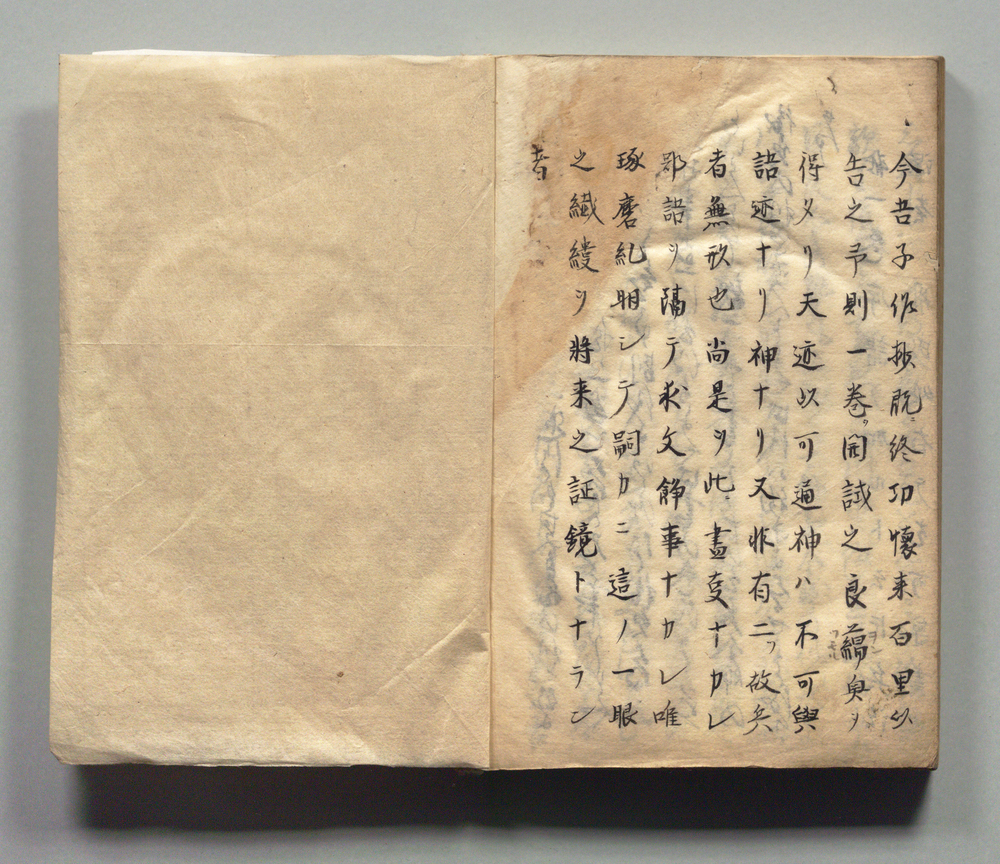 今吾子作抄既ニ終功懐来百里以
告之予則一巻ヲ開誠之良蘊奥ヲ
得タリ天迹以可通神ハ不可與
語迹ナリ神ナリ又非有二ツ故兵
者無形也尚是ヲ此ニ盡ナカレ
鄙語ヲ隔テ求文餝事ナカレ唯
琢磨糺明シテ嗣カニ這ノ一眼
之繊縷ヲ将来之証鏡トナラン
者